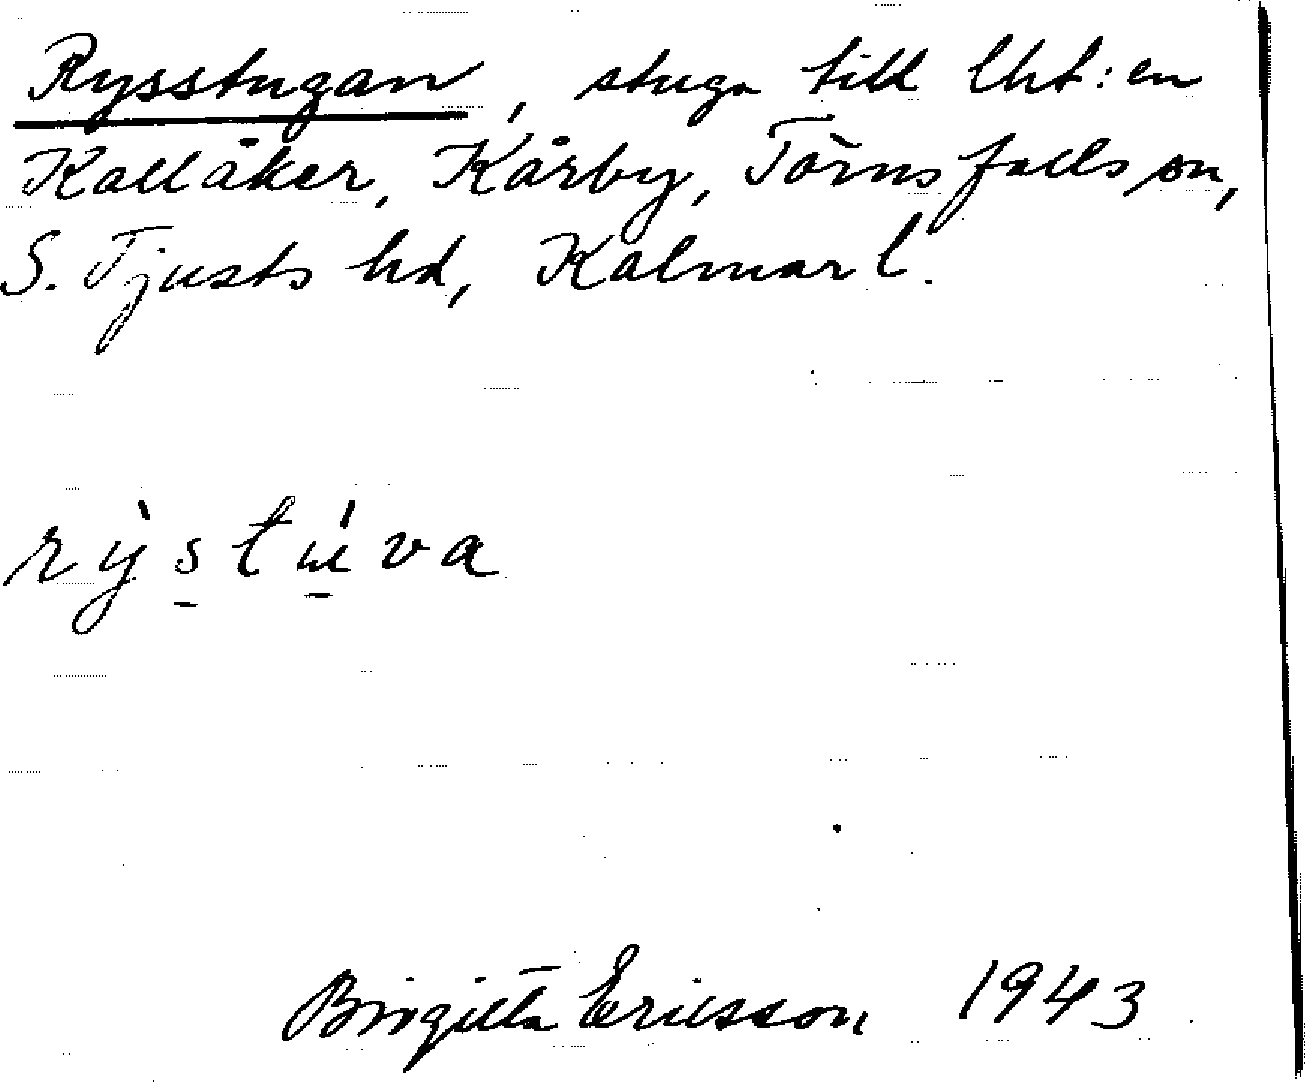 Rysstugan, stuga till Uht:en
Kallåker, Kårby, Törnsfalls sn,
S. Tjusts hd, Kalmar l.
rỳstúva
Birgitta Ericsson 1943